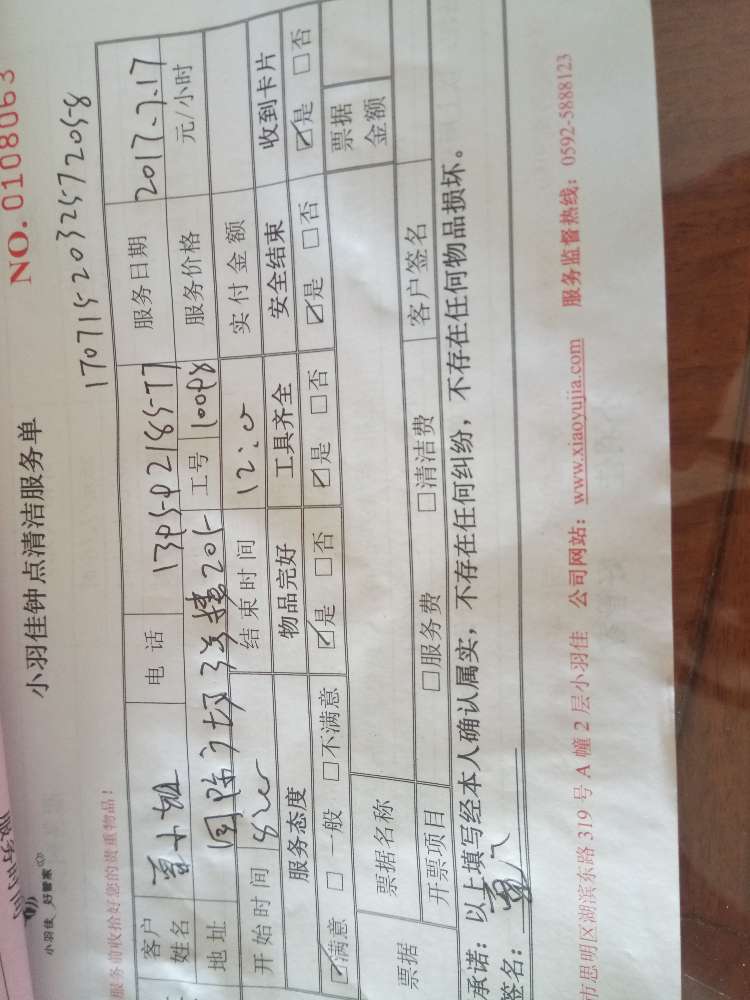 小羽佳 好管家
小羽佳钟点清洁服务单
NO.0108063
17071520325572058
服务前收拾好您的贵重物品！
客户姓名 电话 服务日期 2017.7.17
地址 工号 服务价格 元/小时
开始时间 结束时间 12:0 实付金额
服务态度 物品完好 工具齐全 安全结束 收到卡片
☑满意 □一般 □不满意 ☑是 □否 ☑是 □否 ☑是 □否 ☑是 □否
票据 票据名称 票据金额
开票项目 □服务费 □清洁费 客户签名
承诺：以上填写经本人确认属实，不存在任何纠纷，不存在任何物品损坏。
签名：
市思明区湖滨东路 319 号 A 幢 2 层小羽佳 公司网站：www.xiaoyujia.com 服务监督热线：0592-5888123